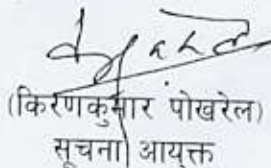 (किरणकुमार पोखरेल)
सूचना आयुक्त